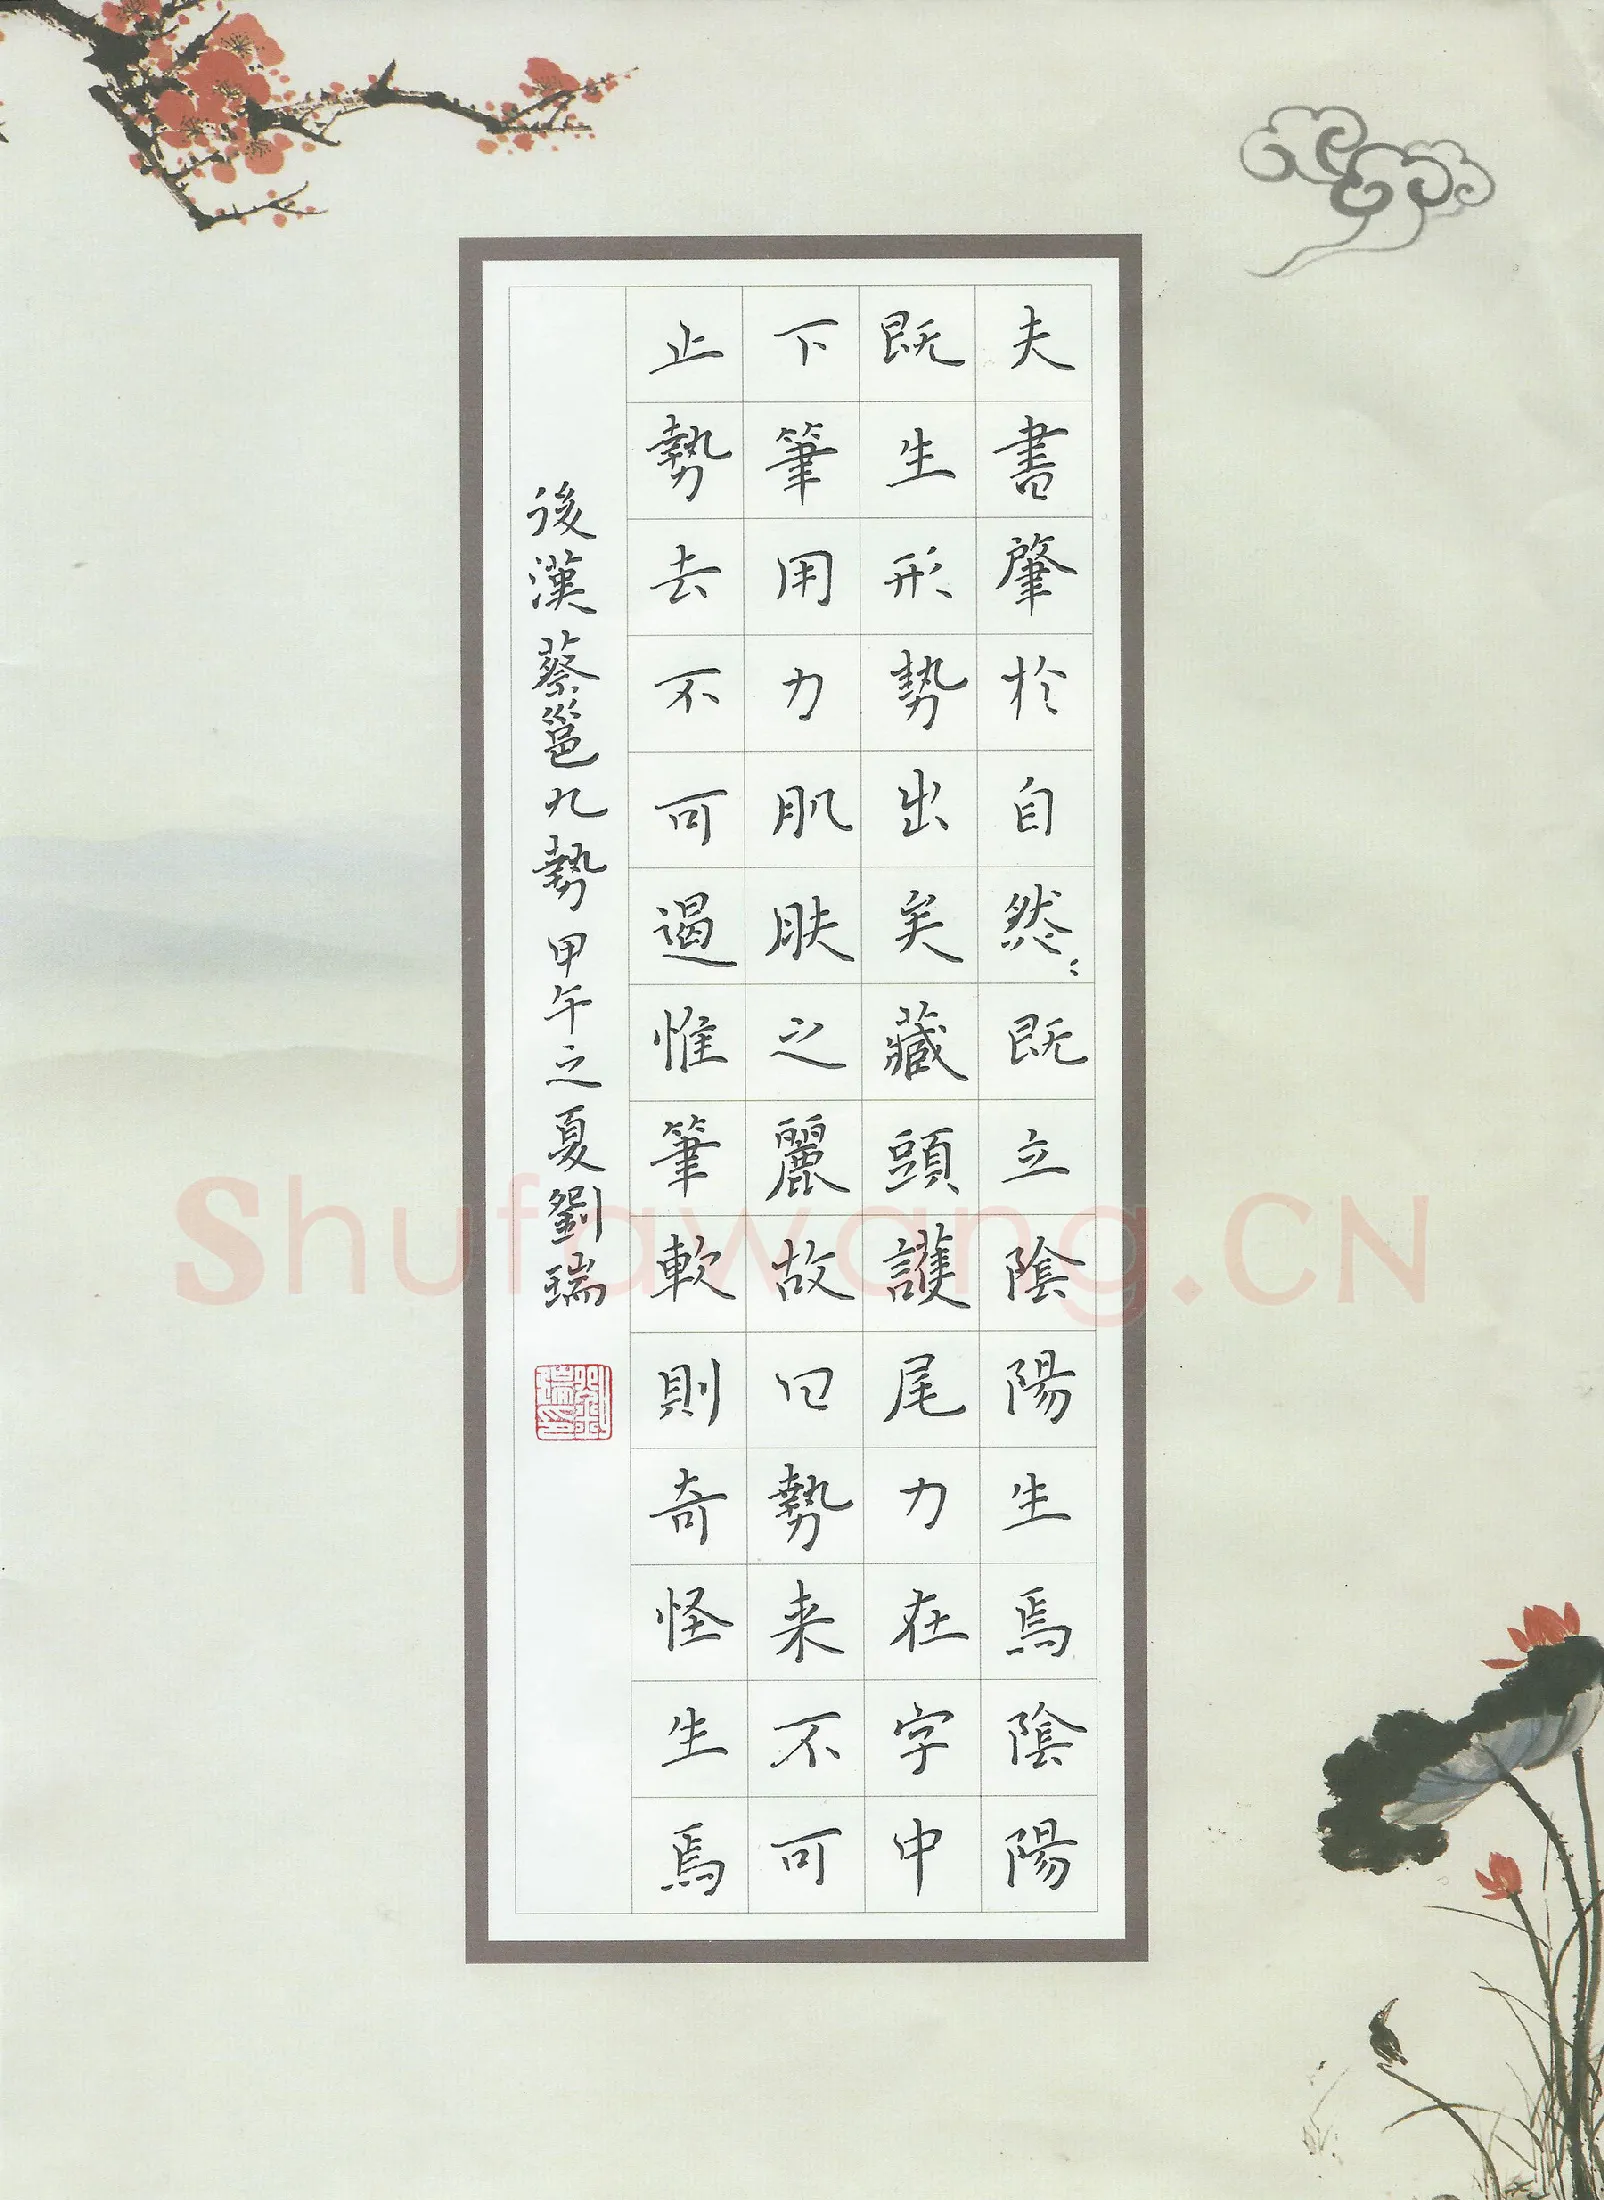 夫書肇於自然〻既立陰陽生焉陰陽
既生形勢出矣藏頭護尾力在字中
下筆用力肌膚之麗故曰勢来不可
止勢去不可遏惟筆軟則奇怪生焉
後漢蔡邕九勢甲午之夏劉瑞
劉瑞印
Shufawang.CN